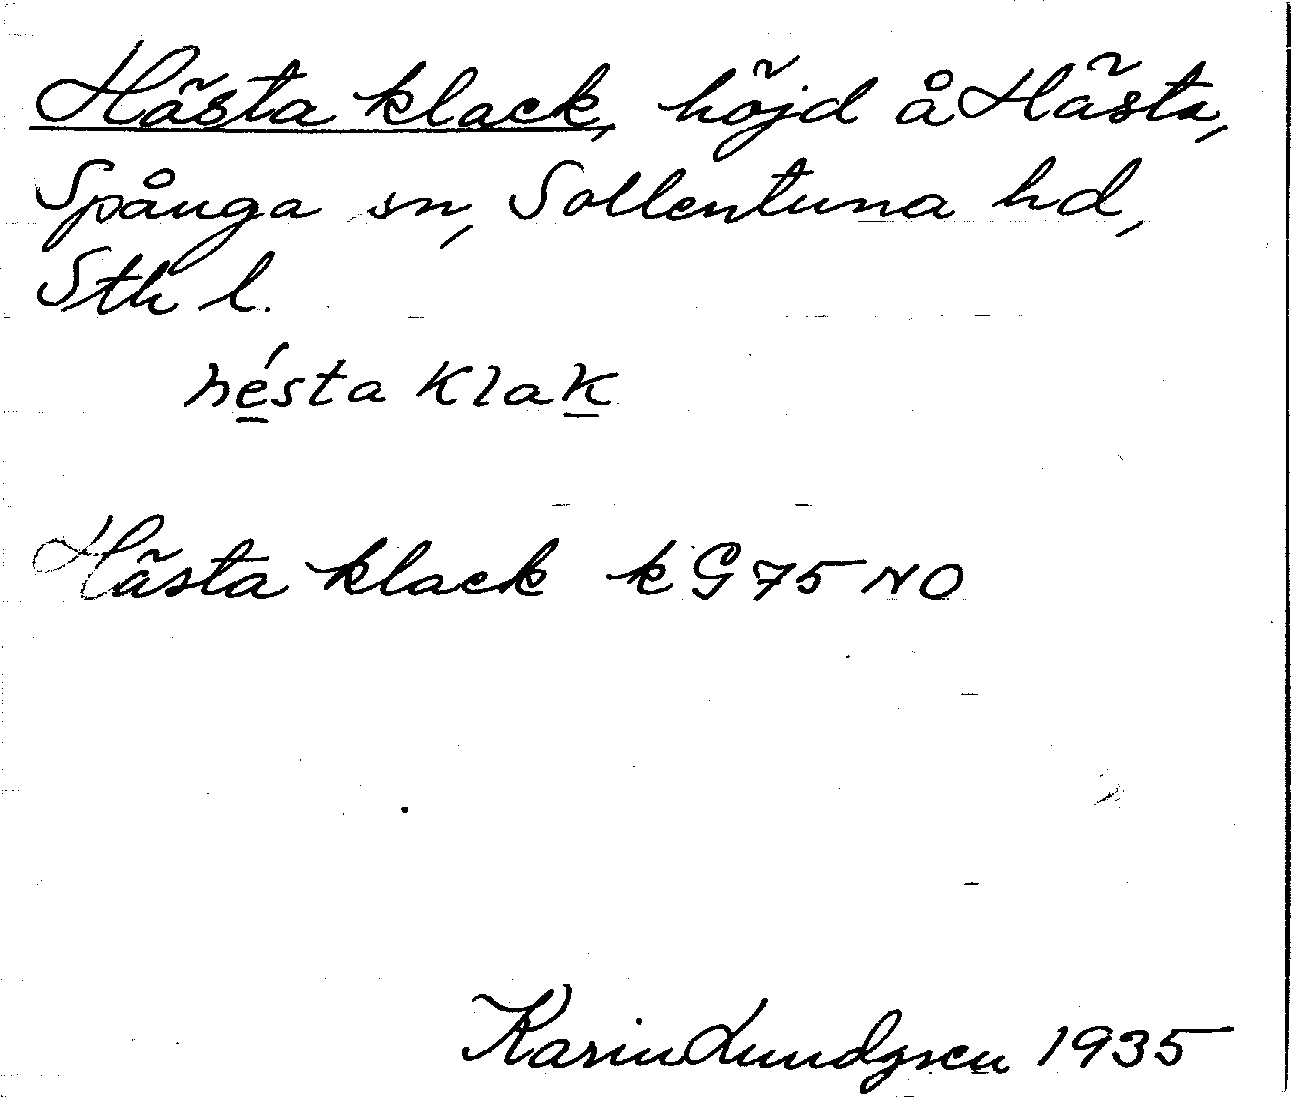 Hästa klack, höjd å Hästa,
Spånga sn, Sollentuna hd,
Sth l.
hésta klak
Hästa klack k G 75 NO
Karin Lundgren 1935